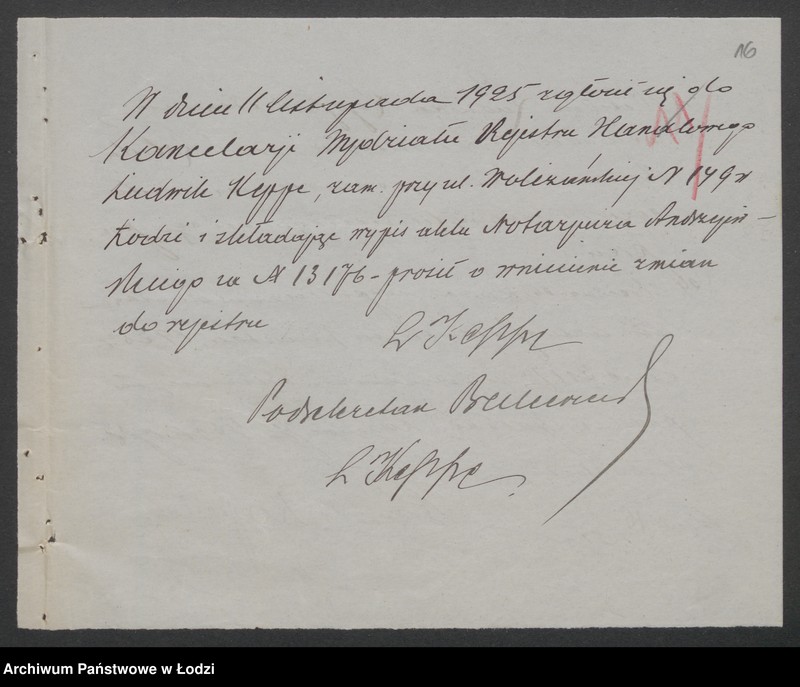 16
W dniu 11 listopada 1925 zgłosił się do
Kancelarji Wydziału Rejestru Handlowego
Ludwik Keppe, zam. przy ul. Wolczańskiej N 149 w
Łodzi i składając wypis aktu Notarjusza Andrzejew-
skiego za N 13176 - prosił o wniesienie zmian
do rejestru
L Keppe
Podsekretarz
L Keppe
Archiwum Państwowe w Łodzi